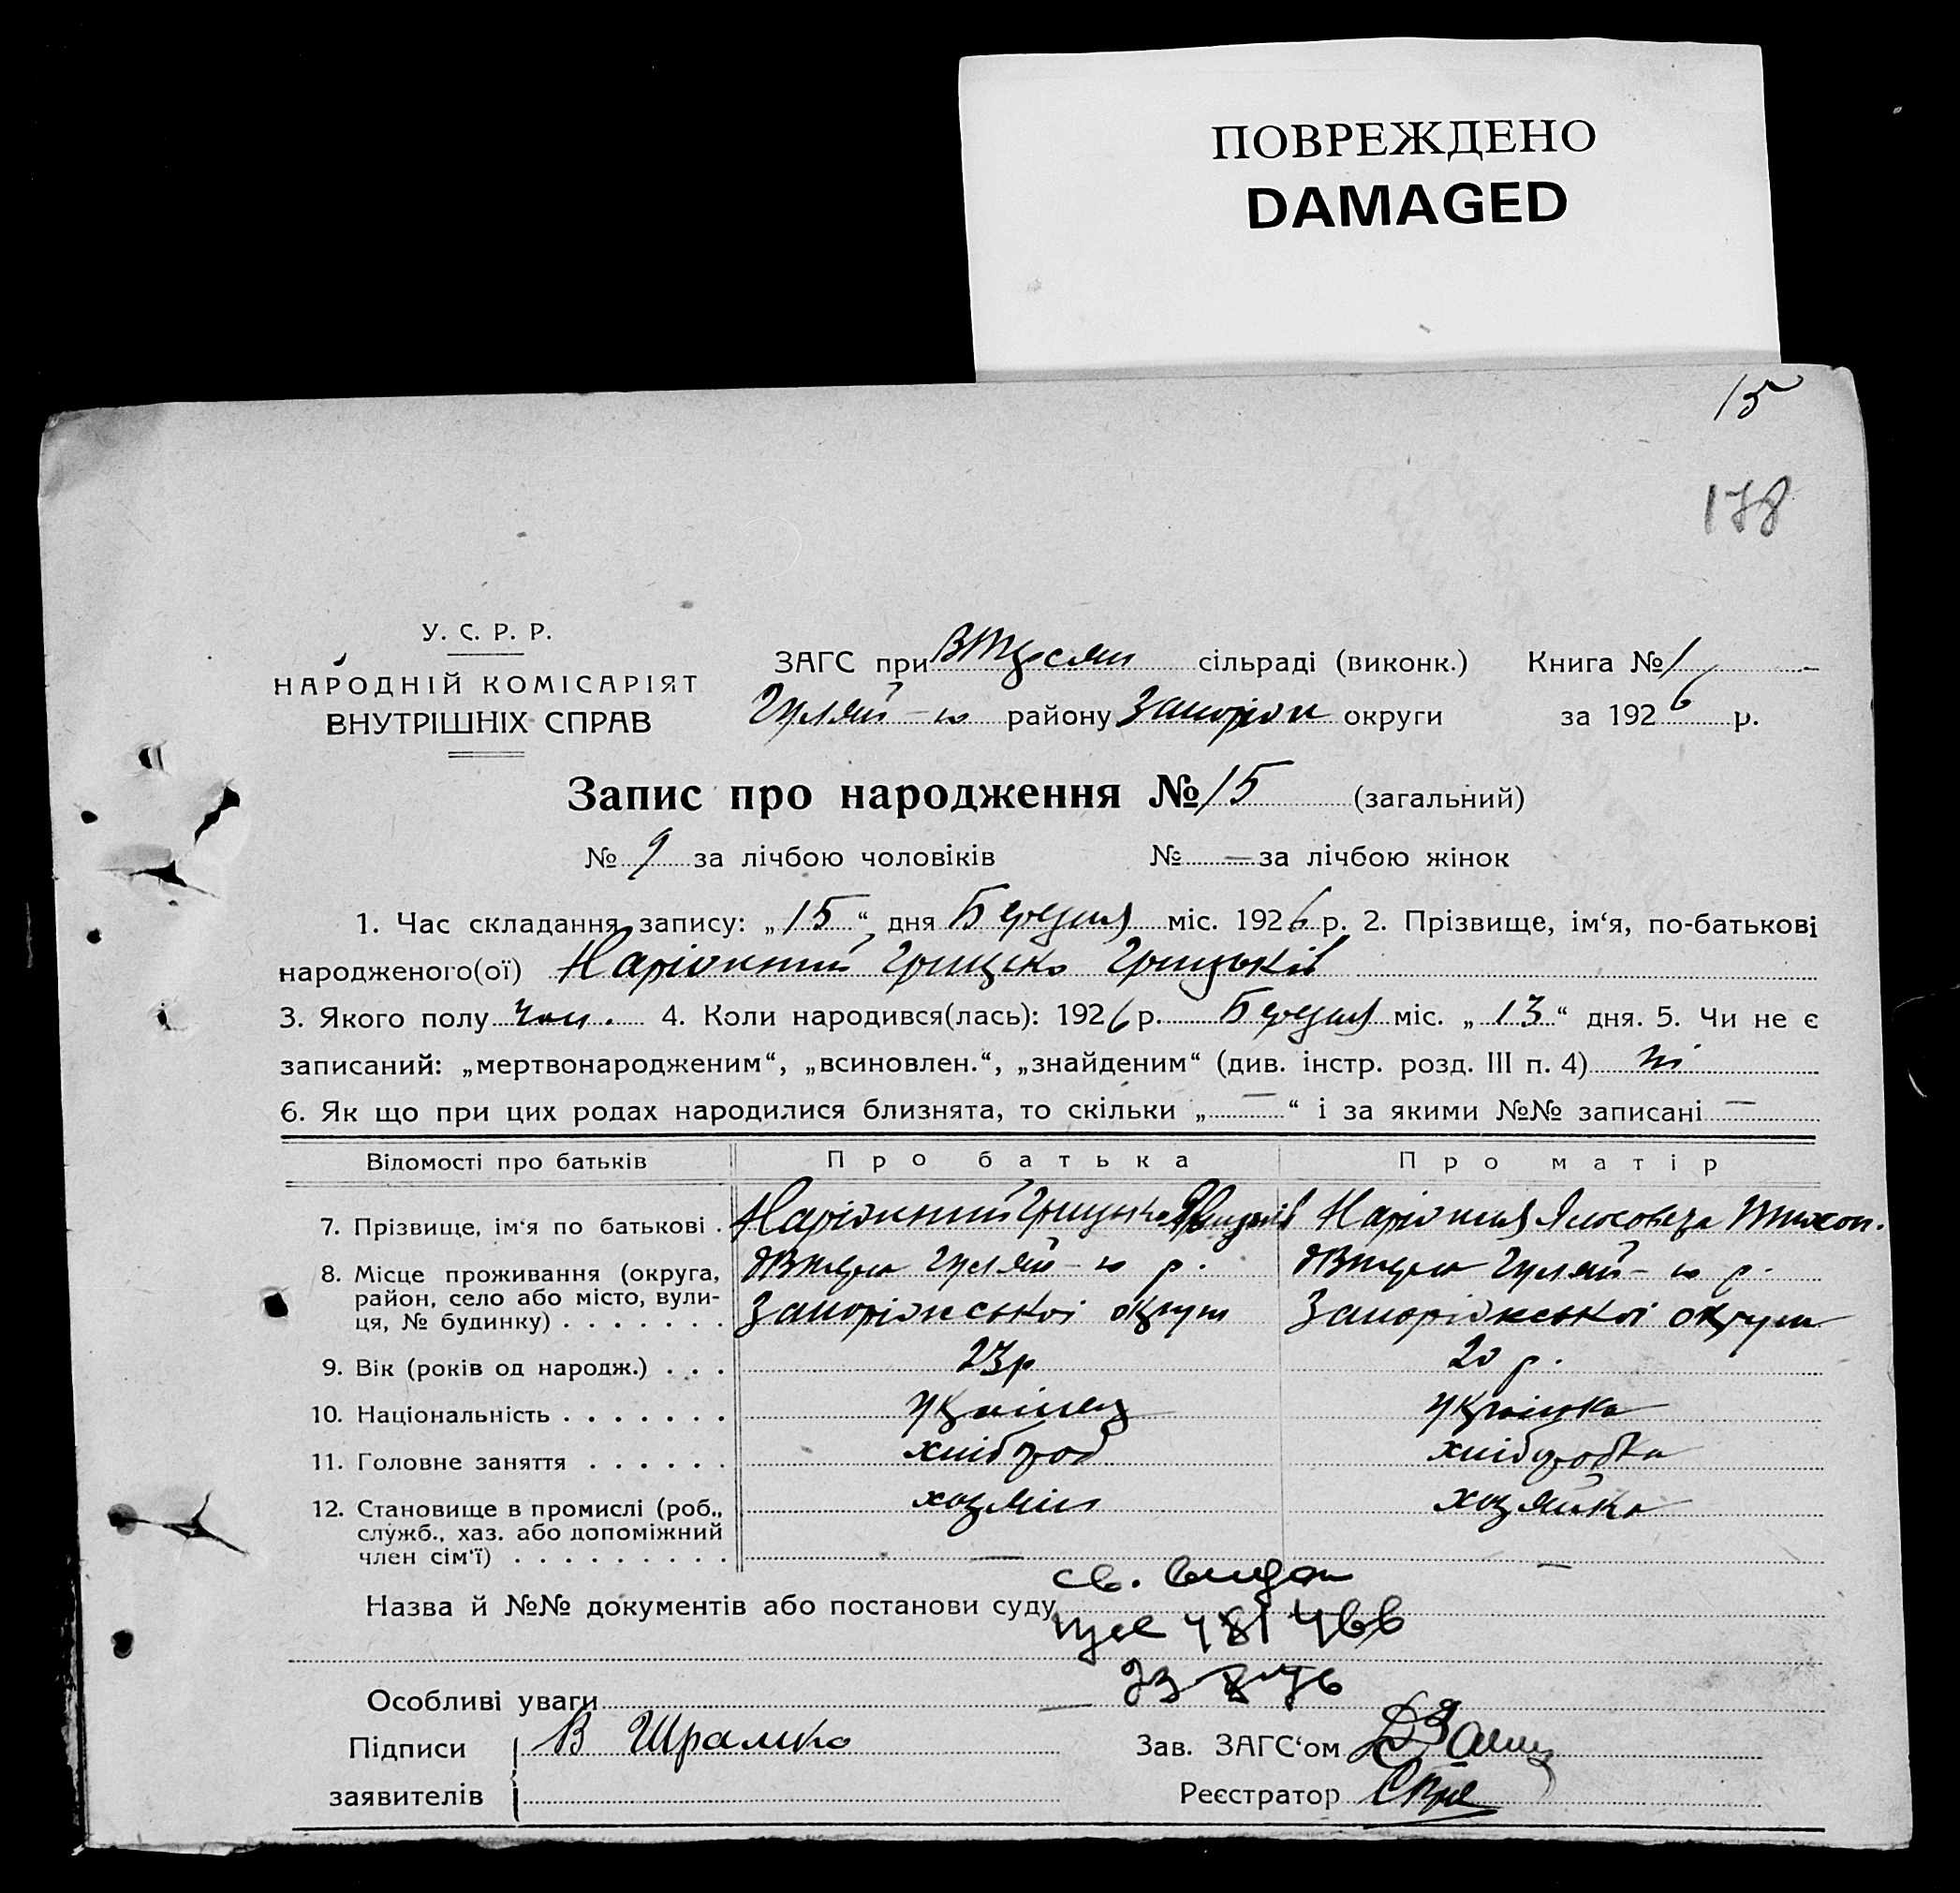 ПОВРЕЖДЕНО
DAMAGED
15
178
У. С. Р. Р.
НАРОДНІЙ КОМІСАРІЯТ
ВНУТРІШНІХ СПРАВ
ЗАГС при сільраді (виконк.) Книга № 1
Гуляй- району Запоріж округи за 1926 р.
Запис про народження № 15 (загальний)
№ 9 за лічбою чоловіків № — за лічбою жінок
1. Час складання запису: „15“ дня Березня міс. 1926 р. 2. Прізвище, ім‘я, по-батькові
народженого(ої) Наріжний Грицько Грицьків
3. Якого полу чол. 4. Коли народився(лась): 1926 р. Березня міс. „13“ дня. 5. Чи не є
записаний: „мертвонародженим“, „всиновлен.“, „знайденим“ (див. інстр. розд. III п. 4) ні
6. Як що при цих родах народилися близнята, то скільки „—“ і за якими №№ записані —
Відомості про батьків Про батька Про матір
7. Прізвище, ім‘я по батькові . Наріжний Грицько Наріжня
8. Місце проживання (округа, Гуляй- р. Гуляй- р.
район, село або місто, вули- Запоріжської округи Запоріжської округи
ця, № будинку) . . . . . . .
9. Вік (років од народж.) . . . 23р 20 р.
10. Національність . . . . . . . українец українка
11. Головне заняття . . . . . . хлібороб хліборобка
12. Становище в промислі (роб., хозяїн хозяйка
служб., хаз. або допоміжний
член сім‘ї) . . . . . . . . . — —
св. видан
Назва й №№ документів або постанови суду
Особливі уваги —
Підписи В Шрамко Зав. ЗАГС‘ом
заявителів Реєстратор